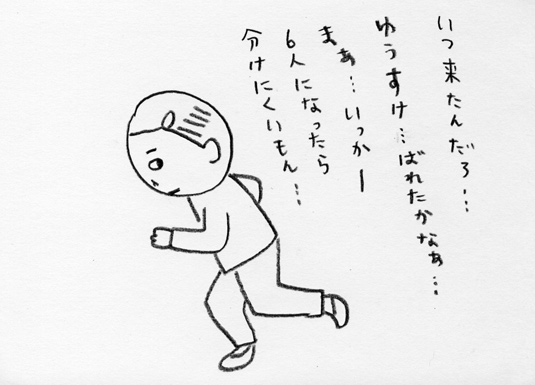 いつ来たんだろ…
ゆうすけ…ばれたかなぁ…
まぁ…いっかー
6人になったら
分けにくいもん…